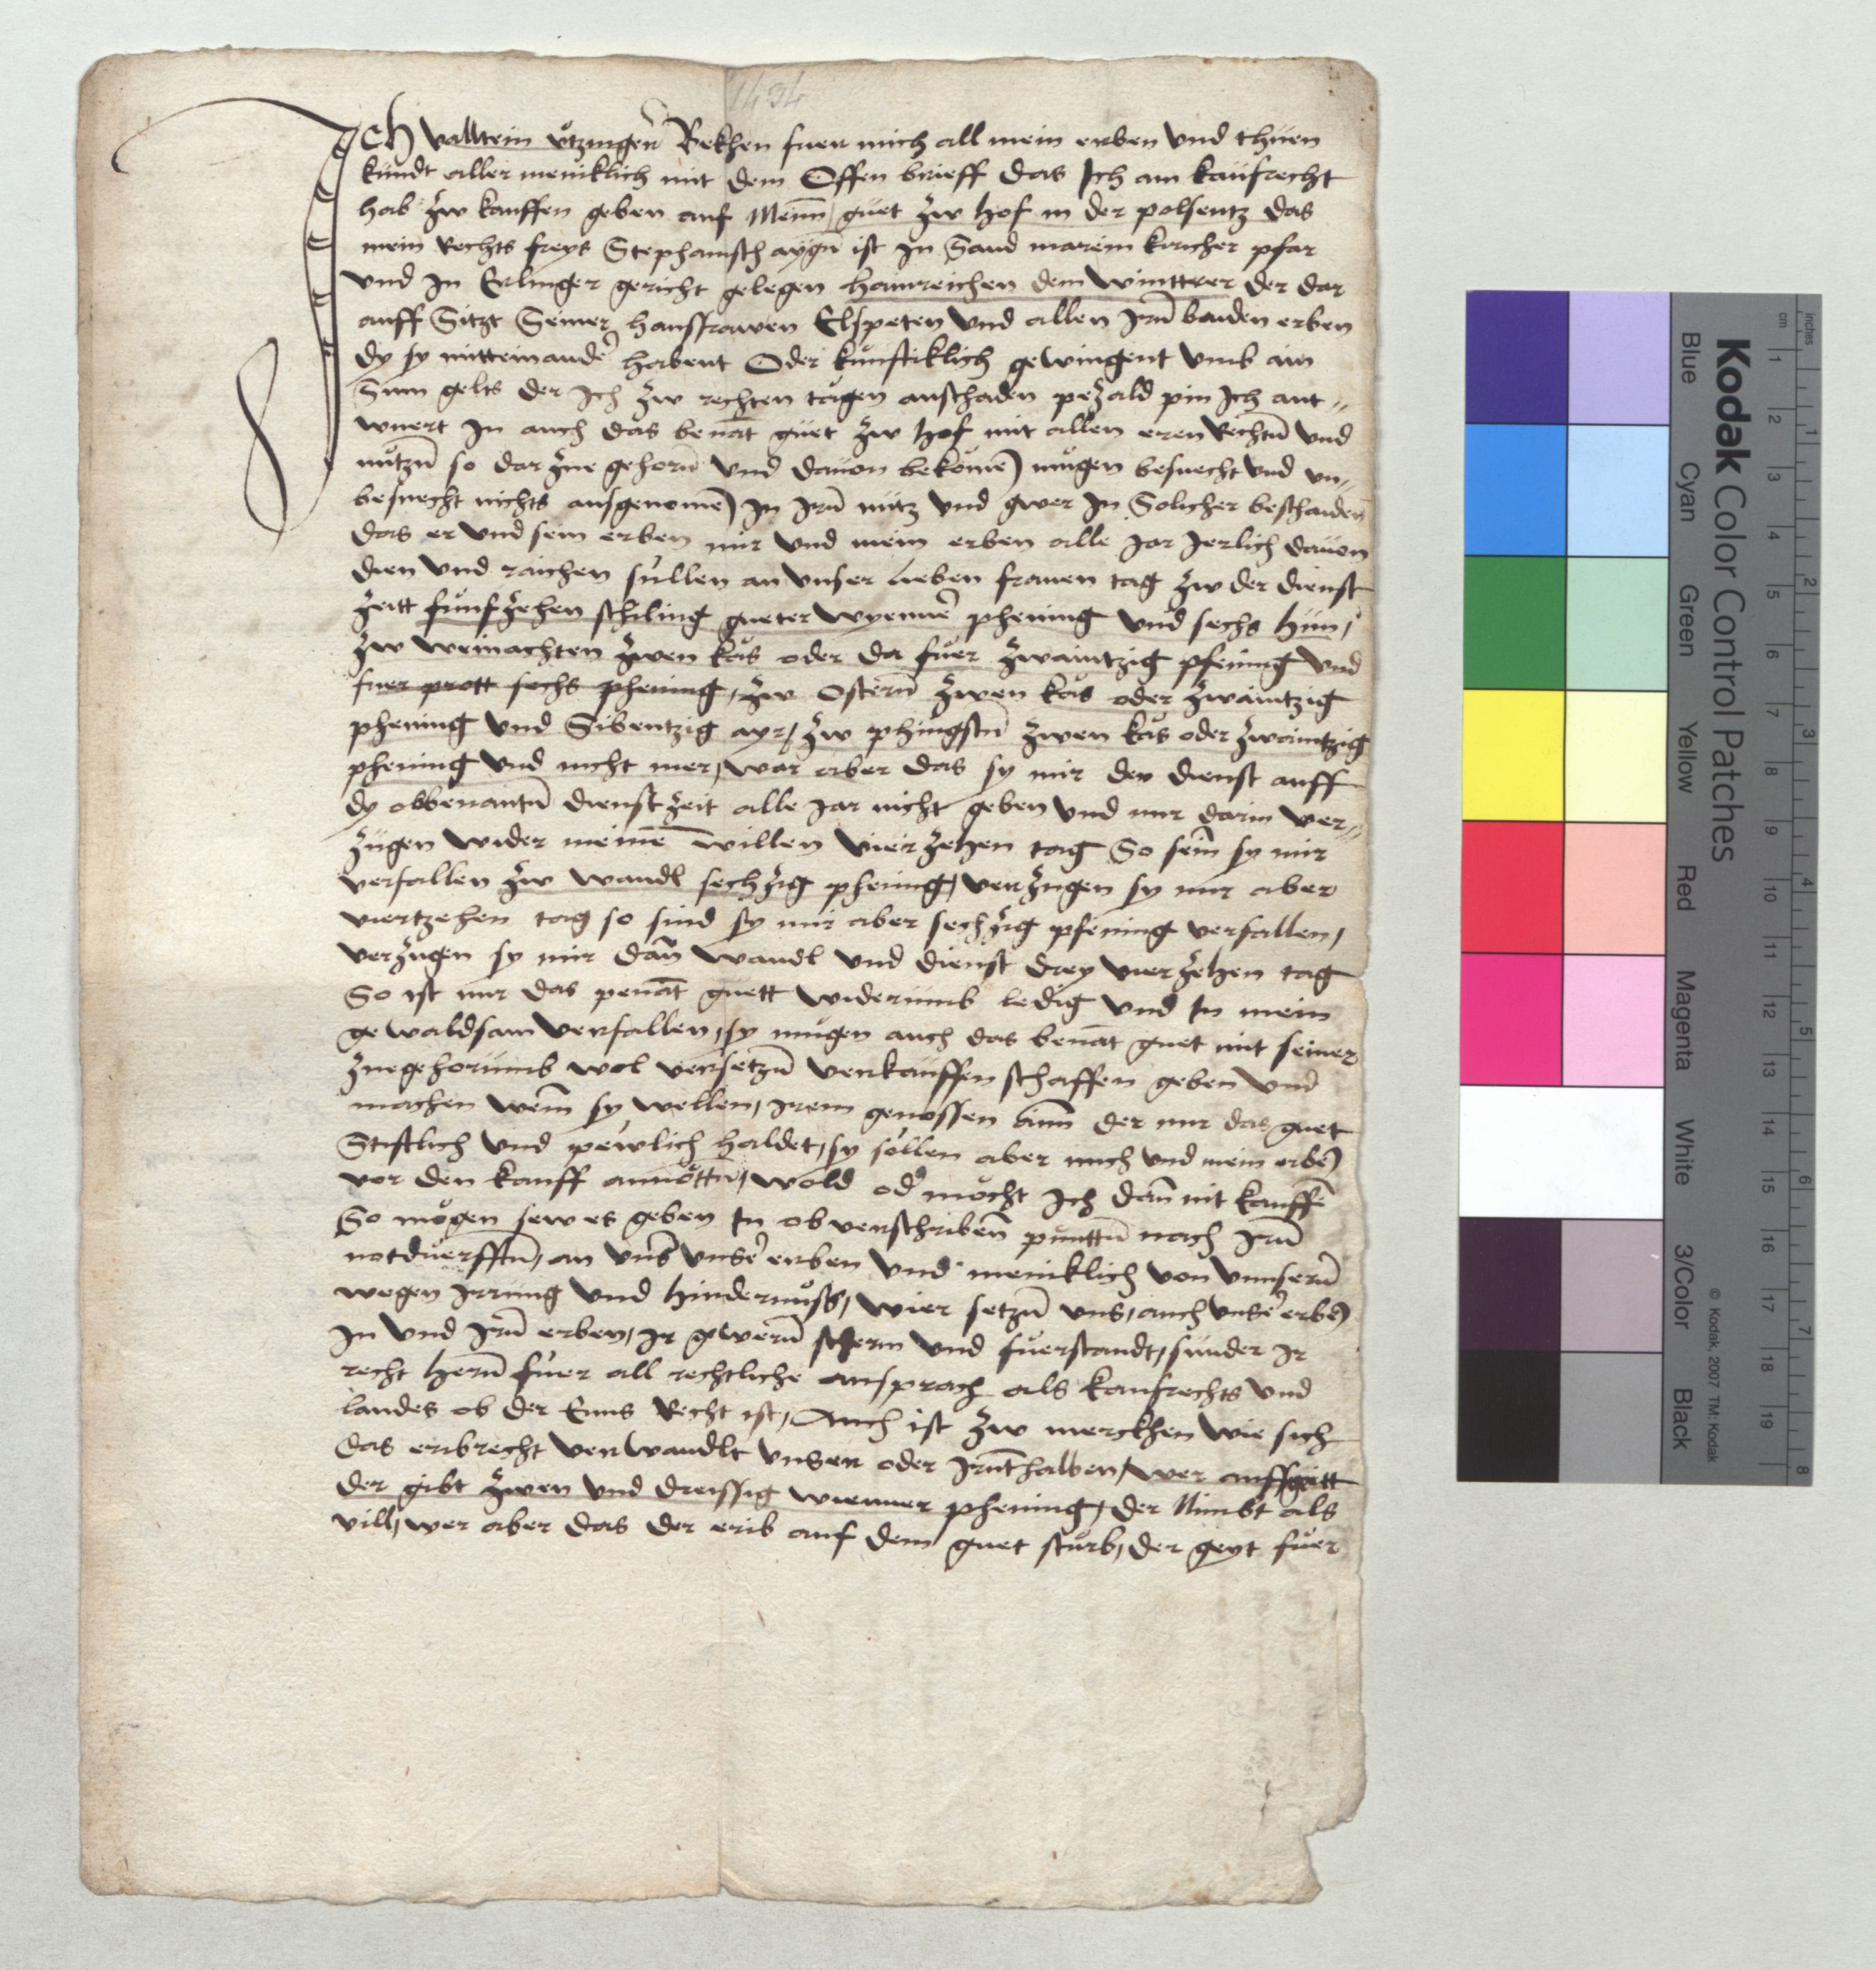 1434
Ich Valltein ütznger Bekhen fuer mich all mein erben Und thuen
kundt aller meniklich mit dem Offen brieff das Ich am kaufrecht
hab zw kauffen geben auf Meinn guet zw hof in der polsentz das
mein Rechts freys Stephanisch aygn̄ ist In Sand marein kiricher pfar
Und In Erlinger gericht gelegen hainreichen dem Wintrer der dar
auff Sitzt Seiner haussfrawen Elspeten Und allen Irn̄ baiden erben
dy sy mitteinander habent Oder künftiklich gewingent umb ain
Sum gelts der Ich zw rechten tägen anschaden pezald pin Ich ant„
wuert In auch das benāt guet zw hof mit allen eren Rechtn̄ Und
nützn̄ so dar zue gehorn̄ Und davon bekomē mügen besuecht Und un„
besuecht nichts ausgenomē In Irn̄ nütz Und gwer In Solicher beschaiden
das er Und sein erben mir Und mein erben alle Jar Jerlich davon
dien Und raichen süllen an Unser lieben frauen tag zw der dienst
zeitt fünfzehen schiling gueter Wyenner phening Und sechs hün,
zw weinachten zwen käs oder da fuer zwaintzig pfening Und
fuer prott sechs phening, zw Ostern̄ zwen käs oder zwaintzig
phening Und Sibentzig ayr, zw phingstn̄ zwen käs oder zwaintzig
phening Und nicht mer, wär aber das sy mir den dienst auff
dy obbenantn̄ dienst zeit alle Jar nicht geben Und mir darin ver„
zügen wider meinē willen vierzehen tag So sein sy mir
verfallen zw wandl sechzig phening, verzugen sy mir aber
viertzehen tag so sind sy mir aber sechzig pfening verfallen,
verzugen sy mir dan̄ wandl Und dienst drey vierzehen tag
So ist mir das penāt guett widerumb ledig Und In mein
gewaldsam verfallen, sy mügen auch das benāt guet mit seiner
zuegehorumb wol versetzn̄ verkauffen schaffen geben Und
machen wem̄ sy wellen, Irem genossen ainn der mir das guet
Stiftlich Und pewlich haldet, sy sollen aber mich Und mein erbē
vor den kauff annöttn̄, wold oder möcht Ich dan̄ nit kauffē
So mögen sew es geben In ob verschribenn̄ puncttn̄ nach Irn̄
notduerfftn̄, an Uns Unser erben Und meniklich von Unnsern̄
wegen Irrung Und hindernuss, wier setzn̄ Uns, auch Unser erbē
In Und Irn̄ erben, Ir gwern̄ scherm Und fuerstandt, sunder Ir
recht hern̄ fuer all rechtliche ansprach als kaufrechts Und
landes ob der Enns Recht ist, Auch ist zw merckhen wie sich
das eribrecht verwandlt Unser oder Irnthalben, wer auffgitt
der gibt zwen Und dreissig wienner phening, der Nimbt als
vill, wer aber das der erib auf dem guet stürb, der geyt fuer
Kodak Color Control Patches
© Kodak, 2007 TM: Kodak
Blue Cyan Green Yellow Red Magenta White 3/Color Black
inches 1 2 3 4 5 6 7 8
cm 1 2 3 4 5 6 7 8 9 10 11 12 13 14 15 16 17 18 19